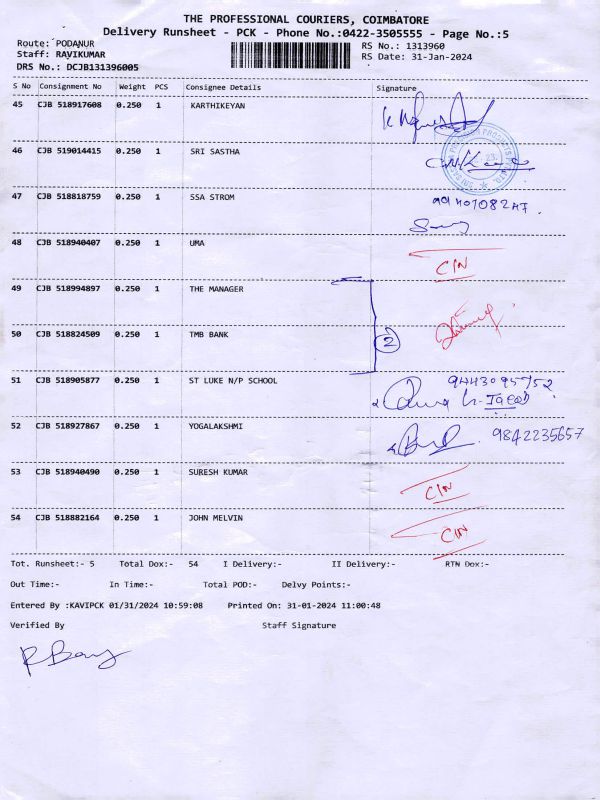 THE PROFESSIONAL COURIERS, COIMBATORE
Delivery Runsheet - PCK - Phone No.:0422-3505555 - Page No.:5
Route: PODANUR RS No.: 1313960
Staff: RAVIKUMAR RS Date: 31-Jan-2024
DRS No.: DCJB131396005
S No Consignment No Weight PCS Consignee Details Signature
45 CJB 518917608 0.250 1 KARTHIKEYAN
46 CJB 519014415 0.250 1 SRI SASTHA
47 CJB 518818759 0.250 1 SSA STROM
48 CJB 518940407 0.250 1 UMA CIN
49 CJB 518994897 0.250 1 THE MANAGER
50 CJB 518824509 0.250 1 TMB BANK 2
51 CJB 518905877 0.250 1 ST LUKE N/P SCHOOL 9443095752
52 CJB 518927867 0.250 1 YOGALAKSHMI 9842235657
53 CJB 518940490 0.250 1 SURESH KUMAR CIN
54 CJB 518882164 0.250 1 JOHN MELVIN CIN
Tot. Runsheet:- 5 Total Dox:- 54 I Delivery:- II Delivery:- RTN Dox:-
Out Time:- In Time:- Total POD:- Delvy Points:-
Entered By :KAVIPCK 01/31/2024 10:59:08 Printed On: 31-01-2024 11:00:48
Verified By Staff Signature